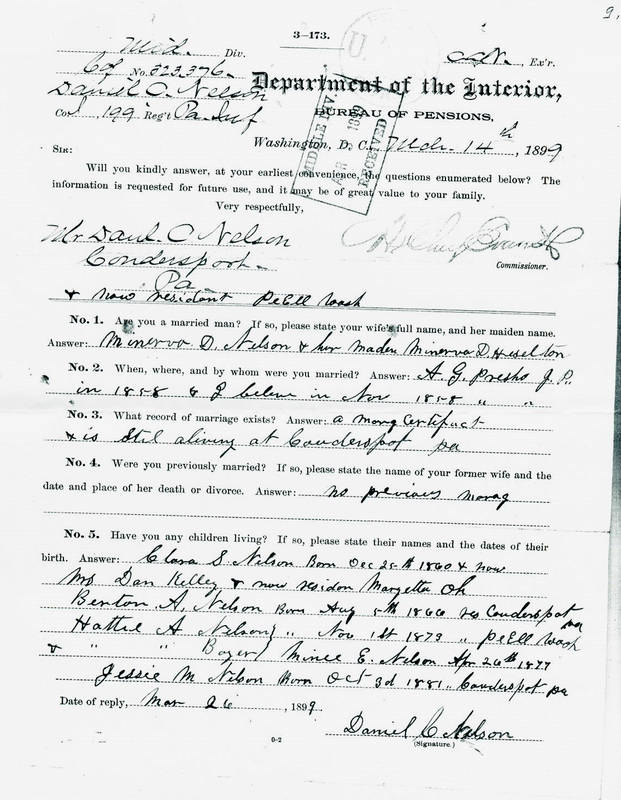 9.
3—173.
Mid. Div.
C. N., Ex'r.
Cof No. 323,376.
Daniel C. Nelson
Department of the Interior,
Co. I 199 Reg't Pa. Inf
BUREAU OF PENSIONS,
MIDDLE DIV.
1899
RECEIVED
Washington, D. C., Mch. 14th, 1899
SIR:
Will you kindly answer, at your earliest convenience, the questions enumerated below? The
information is requested for future use, and it may be of great value to your family.
Very respectfully,
Mr Danl. C Nelson
Commissioner.
Couderspoat
Pa.
& now resident PeEll Wash
No. 1. Are you a married man? If so, please state your wife's full name, and her maiden name.
Answer: Minerva D. Nelson & her maden Minerva D. Heselton
No. 2. When, where, and by whom were you married? Answer: A. G. Presho J. P.
in 1858 & I beleve in Nov 1858 " "
No. 3. What record of marriage exists? Answer: a marg Certifuct
& is Stil aliving at Couderspoat pa
No. 4. Were you previously married? If so, please state the name of your former wife and the
date and place of her death or divorce. Answer: no previous marag
No. 5. Have you any children living? If so, please state their names and the dates of their
birth. Answer: Clara S. Nelson Born Dec 25th 1860 & now
Mrs Dan Kelley & now residon Margetta Oh
Benton A. Nelson Born Aug 5th 1866 res Couderspoat pa
Hattie A Nelson " Nov 1st 1873 " PeEll Wash
" " Boyer Mince E. Nelson Apr 26th 1877
Jessie M Nelson Born Oct 3d 1881 " Couderspoat pa
Date of reply, Mar 26, 1899.
Daniel C Nelson
(Signature.)
0-2